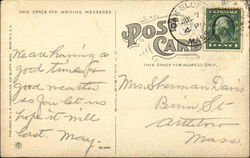 THIS SPACE FOR WRITING MESSAGES.
POST CARD
THIS SPACE FOR ADDRESS ONLY.
We are having a
good time &
good weather
so far let us
hope it will
last. May.
Mrs Sherman Davis
Bank St
Attleboro
Mass